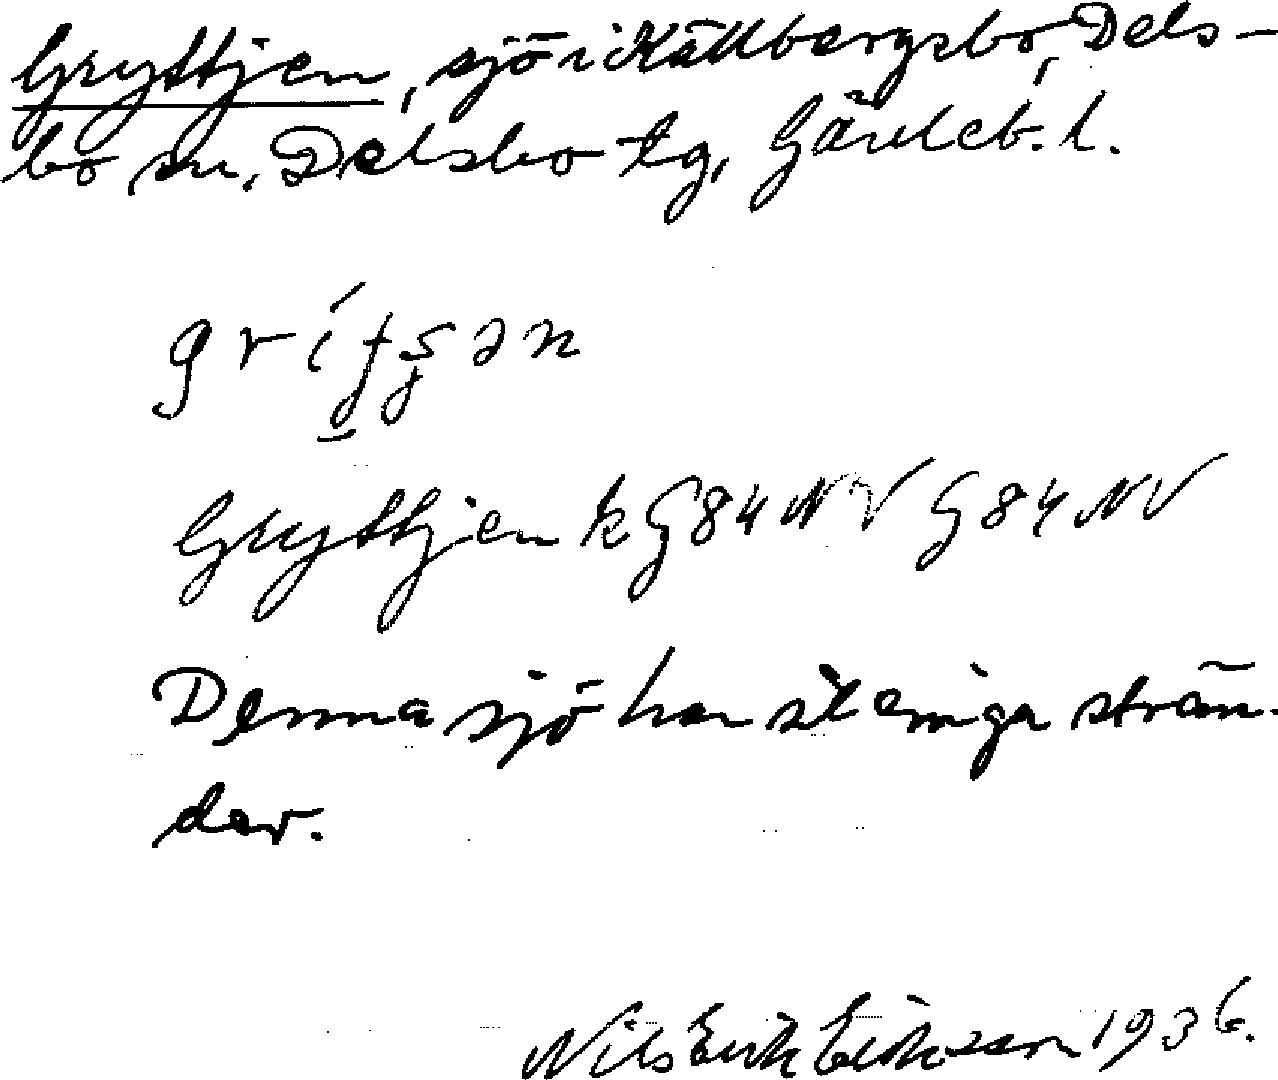 Gryttjen, sjö i Källbergsbo, Dels-
bo sn. Delsbo tg, Gävleb. l.
Gryttjen k G 84 NV G 84 NV
Denna sjö har steniga strän-
der.
Nils Erik Eriksson 1936.